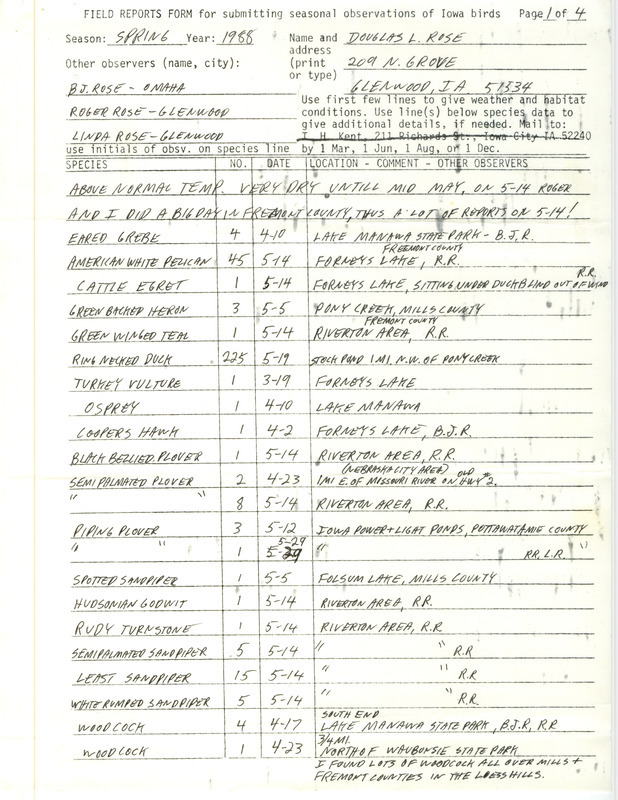 FIELD REPORTS FORM for submitting seasonal observations of Iowa birds Page 1 of 4
Season: SPRING Year: 1988 Name and DOUGLAS L. ROSE
address
Other observers (name, city): (print 209 N. GROVE
or type)
B.J. ROSE - OMAHA GLENWOOD, IA 51334
Use first few lines to give weather and habitat
ROGER ROSE - GLENWOOD conditions. Use line(s) below species data to
give additional details, if needed. Mail to:
LINDA ROSE - GLENWOOD T. H. Kent, 211 Richards St., Iowa City IA 52240
use initials of obsv. on species line by 1 Mar, 1 Jun, 1 Aug, or 1 Dec.
SPECIES NO. DATE LOCATION - COMMENT - OTHER OBSERVERS
ABOVE NORMAL TEMP. VERY DRY UNTILL MID MAY, ON 5-14 ROGER
AND I DID A BIG DAY IN FREMONT COUNTY, THUS A LOT OF REPORTS ON 5-14!
EARED GREBE 4 4-10 LAKE MANAWA STATE PARK - B.J.R.
FREEMONT COUNTY
AMERICAN WHITE PELICAN 45 5-14 FORNEYS LAKE, R.R.
R.R.
CATTLE EGRET 1 5-14 FORNEYS LAKE, SITTING UNDER DUCKBLIND OUT OF WIND
GREEN BACKED HERON 3 5-5 PONY CREEK, MILLS COUNTY
FREMONT COUNTY
GREEN WINGED TEAL 1 5-14 RIVERTON AREA, R.R.
RING NECKED DUCK 225 5-19 STOCK POND 1 MI. N.W. OF PONY CREEK
TURKEY VULTURE 1 3-19 FORNEYS LAKE
OSPREY 1 4-10 LAKE MANAWA
COOPERS HAWK 1 4-2 FORNEYS LAKE, B.J.R.
BLACK BELLIED PLOVER 1 5-14 RIVERTON AREA, R.R.
(NEBRASKA CITY AREA) OLD
SEMIPALMATED PLOVER 2 4-23 1 MI E. OF MISSOURI RIVER ON HWY #2.
" " 8 5-14 RIVERTON AREA, R.R.
PIPING PLOVER 3 5-12 IOWA POWER + LIGHT PONDS, POTTAWATAMIE COUNTY
5-29
" " 1 5-29 " " RR. L.R.
SPOTTED SANDPIPER 1 5-5 FOLSUM LAKE, MILLS COUNTY
HUDSONIAN GODWIT 1 5-14 RIVERTON AREA, RR.
RUDY TURNSTONE 1 5-14 RIVERTON AREA, R.R
SEMIPALMATED SANDPIPER 5 5-14 " " R.R
LEAST SANDPIPER 15 5-14 " " R.R
WHITE RUMPED SANDPIPER 5 5-14 " " R.R.
SOUTH END
WOODCOCK 4 4-17 LAKE MANAWA STATE PARK, B.J.R, RR
3/4 MI.
WOODCOCK 1 4-23 NORTH OF WAUBONSIE STATE PARK
I FOUND LOTS OF WOODCOCK ALL OVER MILLS +
FREMONT COUNTIES IN THE LOESS HILLS.